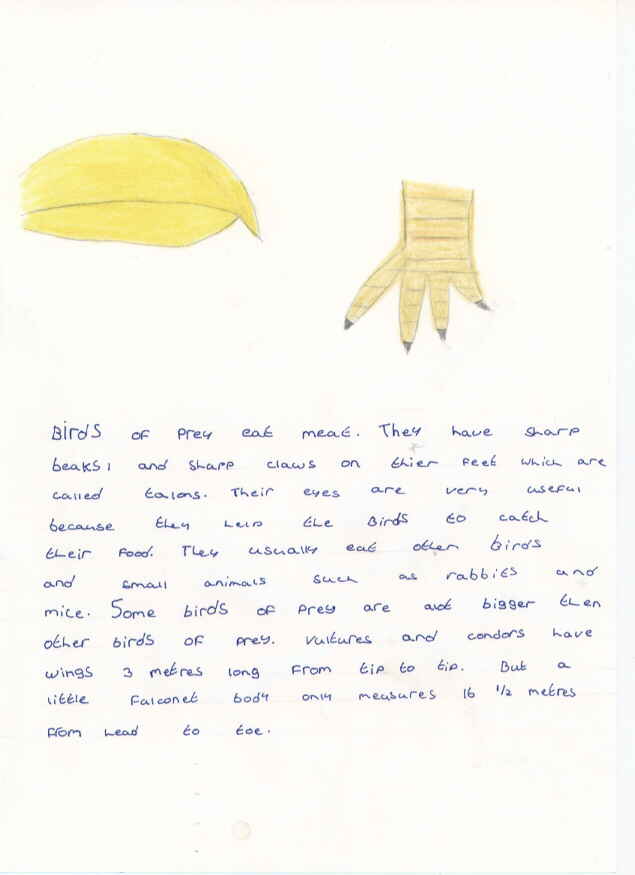 Birds of Prey eat meat. They have sharp
beaks, and sharp claws on thier feet which are
called talons. Their eyes are very useful
because they help the Birds to catch
their food. They usually eat other birds
and small animals such as rabbits and
mice. Some birds of Prey are bigger then
other birds of prey. Vultures and condors have
wings 3 metres long From tip to tip. But a
little Falconet body only measures 16 1/2 metres
from head to toe.